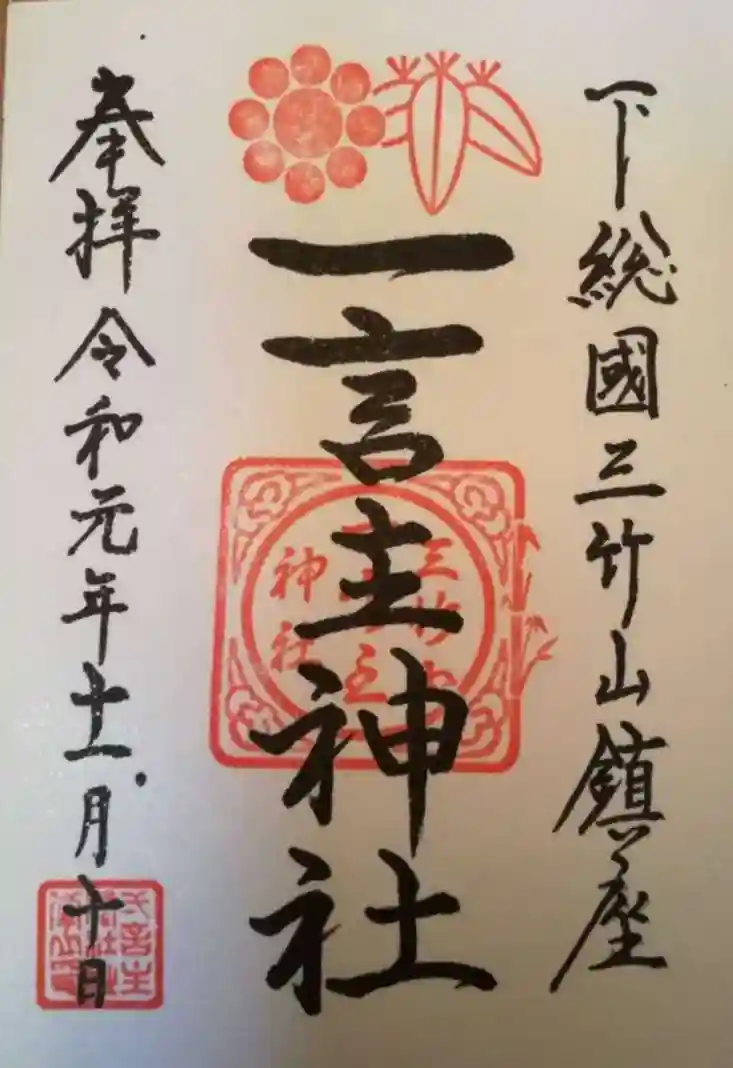 下総國三竹山鎮座
一言主神社
三竹山
一言主
神社
奉拝 令和元年十一月十日